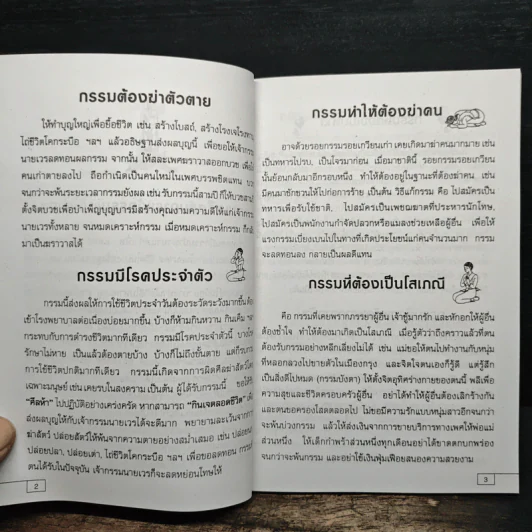 กรรมต้องฆ่าตัวตาย
ให้ทำบุญใหญ่เพื่อยื้อชีวิต เช่น สร้างโบสถ์, สร้างโรงเจโรงทาน,
ไถ่ชีวิตโคกระบือ ฯลฯ แล้วอธิษฐานส่งผลบุญนี้ เพื่อขอให้เจ้ากรรม
นายเวรลดทอนผลกรรม จากนั้น ให้สละเพศฆราวาสออกบวช เพื่อ
คนเก่าตายลงไป ถือกำเนิดเป็นคนใหม่ในเพศบรรพชิตแทน
จนกว่าจะพ้นระยะเวลากรรมยังผล เช่น รับกรรมนี้สามปี ก็ให้บวช
ตั้งจิตบวชเพื่อบำเพ็ญบุญบารมีสร้างคุณงามความดีให้แก่เจ้ากรรม
นายเวรทั้งหลาย จนหมดเคราะห์กรรม เมื่อหมดเคราะห์กรรม ก็
มาเป็นฆราวาสได้
กรรมมีโรคประจำตัว
กรรมนี้ส่งผลให้การใช้ชีวิตประจำวันต้องระวัดระวังมากขึ้น ต้อง
เข้าโรงพยาบาลต่อเนื่องบ่อยมากขึ้น บ้างก็ห้ามกินหวาน กินเค็ม ฯลฯ
กระทบกับการดำรงชีวิตมากทีเดียว กรรมมีโรคประจำตัวนี้ บาง
รักษาไม่หาย เป็นแล้วต้องตายบ้าง บ้างก็ไม่ถึงขั้นตาย แต่ก็รบกวน
การใช้ชีวิตปกติมากทีเดียว กรรมนี้เกิดจากการผิดศีลฆ่าสัตว์
เฉพาะมนุษย์ เช่น เคยรบในสงคราม เป็นต้น ผู้ได้รับกรรมนี้ ขอให้
"ศีลห้า" ไปปฏิบัติอย่างเคร่งครัด หากสามารถ "กินเจตลอดชีวิต" เพื่อ
ส่งผลบุญให้กับเจ้ากรรมนายเวรได้จะดีมาก พยายามละเว้นจากการ
ฆ่าสัตว์ ปล่อยสัตว์ให้พ้นจากความตายอย่างสม่ำเสมอ เช่น ปล่อยนก
ปล่อยปลา, ปล่อยเต่า, ไถ่ชีวิตโคกระบือ ฯลฯ เพื่อขอลดทอน กรรม
ตนได้รับในปัจจุบัน เจ้ากรรมนายเวรก็จะลดหย่อนโทษให้
2
กรรมทำให้ต้องฆ่าคน
อาจด้วยรอยกรรมรอยเกวียนเก่า เคยเกิดมาฆ่าคนมากมาย เช่น
เป็นทหารไปรบ, เป็นโจรมาก่อน เมื่อมาชาตินี้ รอยกรรมรอยเกวียน
นั้นย้อนกลับมาอีกรอบหนึ่ง ทำให้ต้องอยู่ในฐานะที่ต้องฆ่าคน เช่น
มีคนมาชักชวนให้ไปก่อการร้าย เป็นต้น วิธีแก้กรรม คือ ไปสมัครเป็น
ทหารเพื่อรับใช้ชาติ, ไปสมัครเป็นเพชฌฆาตที่ประหารนักโทษ,
ไปสมัครเป็นพนักงานกำจัดปลวกหรือแมลงช่วยเหลือผู้อื่น เพื่อให้
แรงกรรมเบี่ยงเบนไปในทางที่เกิดประโยชน์แก่คนจำนวนมาก กรรม
จะลดทอนลง กลายเป็นผลดีแทน
กรรมที่ต้องเป็นโสเภณี
คือ กรรมที่เคยพรากภรรยาผู้อื่น เจ้าชู้มากรัก และหักอกให้ผู้อื่น
ต้องช้ำใจ ทำให้ต้องมาเกิดเป็นโสเภณี เมื่อรู้ตัวว่าถึงคราวแล้วที่ตน
ต้องรับกรรมอย่างหลีกเลี่ยงไม่ได้ เช่น แม่ขอให้ตนไปทำงานกับหนุ่ม
ที่หลอกลวงไปขายตัวในเมืองกรุง และจิตใจตนเองก็รู้ดี แต่รู้สึก
เป็นสิ่งดีไปหมด (กรรมบังตา) ให้ตั้งจิตอุทิศร่างกายของตนนี้ พลีเพื่อ
ความสุขและชีวิตครอบครัวผู้อื่น อย่าได้ทำให้ผู้อื่นต้องเลิกร้างกัน
และตนขอครองโสดตลอดไป ไม่ขอมีความรักแบบหนุ่มสาวอีกจนกว่า
จะพ้นบ่วงกรรม แล้วให้ส่งเงินจากการขายบริการทางเพศให้พ่อแม่
ส่วนหนึ่ง ให้เด็กกำพร้าส่วนหนึ่งทุกเดือนอย่าได้ขาดตกบกพร่อง
จนกว่าจะพ้นกรรม และอย่าใช้เงินฟุ่มเฟือยสนองความสวยงาม
3